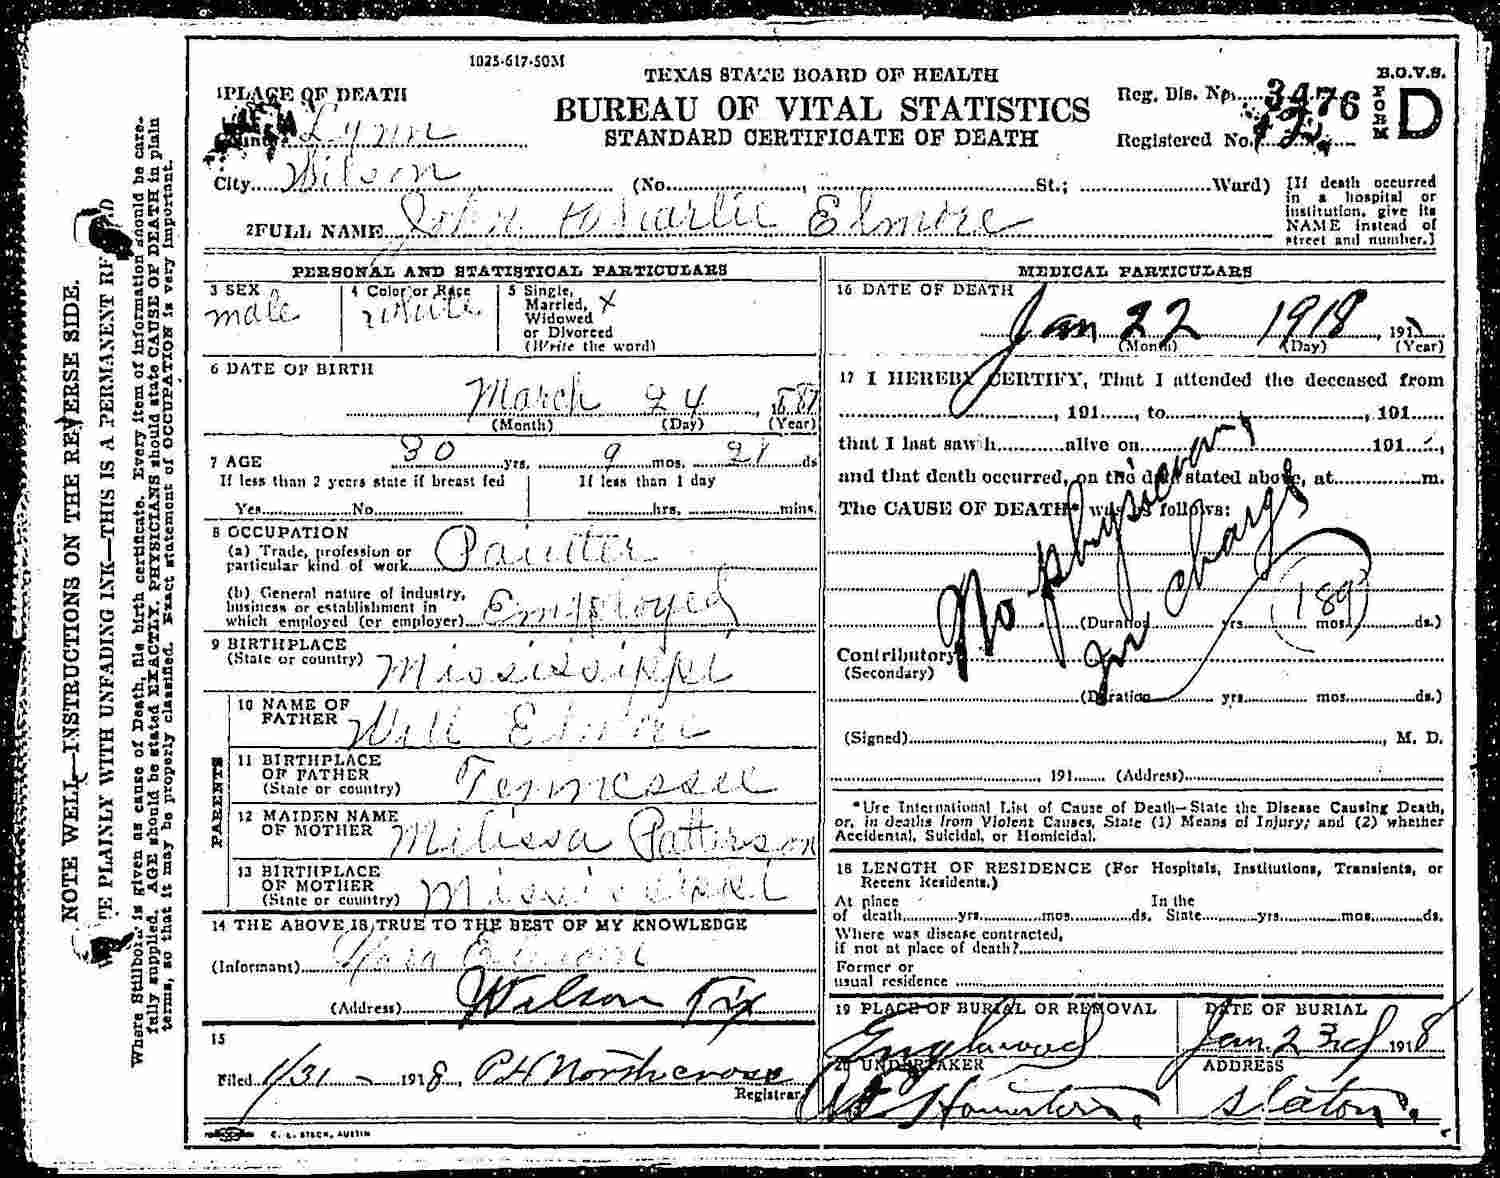 1025-617-50M
TEXAS STATE BOARD OF HEALTH
BUREAU OF VITAL STATISTICS
STANDARD CERTIFICATE OF DEATH
B.O.V.S.
FORM D
Reg. Dis. No. 3476
Registered No.
1 PLACE OF DEATH
County Lynn
City Wilson (No. , St.; Ward)
[If death occurred in a hospital or institution, give its NAME instead of street and number.]
2 FULL NAME John Elmore
PERSONAL AND STATISTICAL PARTICULARS
3 SEX male
4 Color or Race white
5 Single, Married, Widowed or Divorced (Write the word) X
6 DATE OF BIRTH
March 24, 1887
(Month) (Day) (Year)
7 AGE 30 yrs. 9 mos. 28 ds
If less than 2 years state if breast fed
Yes No
If less than 1 day
hrs. mins.
8 OCCUPATION
(a) Trade, profession or particular kind of work Painter
(b) General nature of industry, business or establishment in which employed (or employer) Employed
9 BIRTHPLACE (State or country) Mississippi
PARENTS
10 NAME OF FATHER Will Elmore
11 BIRTHPLACE OF FATHER (State or country) Tennessee
12 MAIDEN NAME OF MOTHER Milissa Patterson
13 BIRTHPLACE OF MOTHER (State or country) Mississippi
14 THE ABOVE IS TRUE TO THE BEST OF MY KNOWLEDGE
(Informant) Elmore
(Address) Wilson Tix
15
Filed 1/31 1918, P H Northcross
Registrar
C. L. STECK, AUSTIN
MEDICAL PARTICULARS
16 DATE OF DEATH
Jan 22 1918, 191
(Month) (Day) (Year)
17 I HEREBY CERTIFY, That I attended the deceased from
, 191 , to , 191
that I last saw h alive on 191 ,
and that death occurred, on the date stated above, at m.
The CAUSE OF DEATH* was as follows:
No physician
in charge
189
(Duration yrs. mos. ds.)
Contributory
(Secondary)
(Duration yrs. mos. ds.)
(Signed) , M. D.
, 191 (Address)
*Use International List of Cause of Death—State the Disease Causing Death,
or, in deaths from Violent Causes, State (1) Means of Injury; and (2) whether
Accidental, Suicidal, or Homicidal.
18 LENGTH OF RESIDENCE (For Hospitals, Institutions, Transients, or
Recent Residents.)
At place of death yrs. mos. ds. In the State yrs. mos. ds.
Where was disease contracted,
if not at place of death?
Former or
usual residence
19 PLACE OF BURIAL OR REMOVAL
Englewood
DATE OF BURIAL
Jan 23rd 1918
20 UNDERTAKER
ADDRESS
Slaton.
NOTE WELL—INSTRUCTIONS ON THE REVERSE SIDE.
PLAINLY WITH UNFADING INK—THIS IS A PERMANENT
Where Stillborn is given as cause of Death, file birth certificate. Every item of information should be care-
fully supplied. AGE should be stated EXACTLY. PHYSICIANS should state CAUSE OF DEATH in plain
terms, so that it may be properly classified. Exact statement of OCCUPATION is very important.